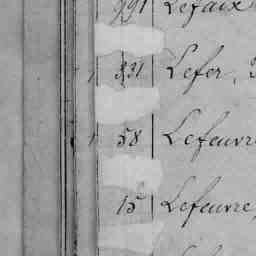 991 Lefaix
331 Lefer,
58 Lefeuvre
15 Lefeuvre,